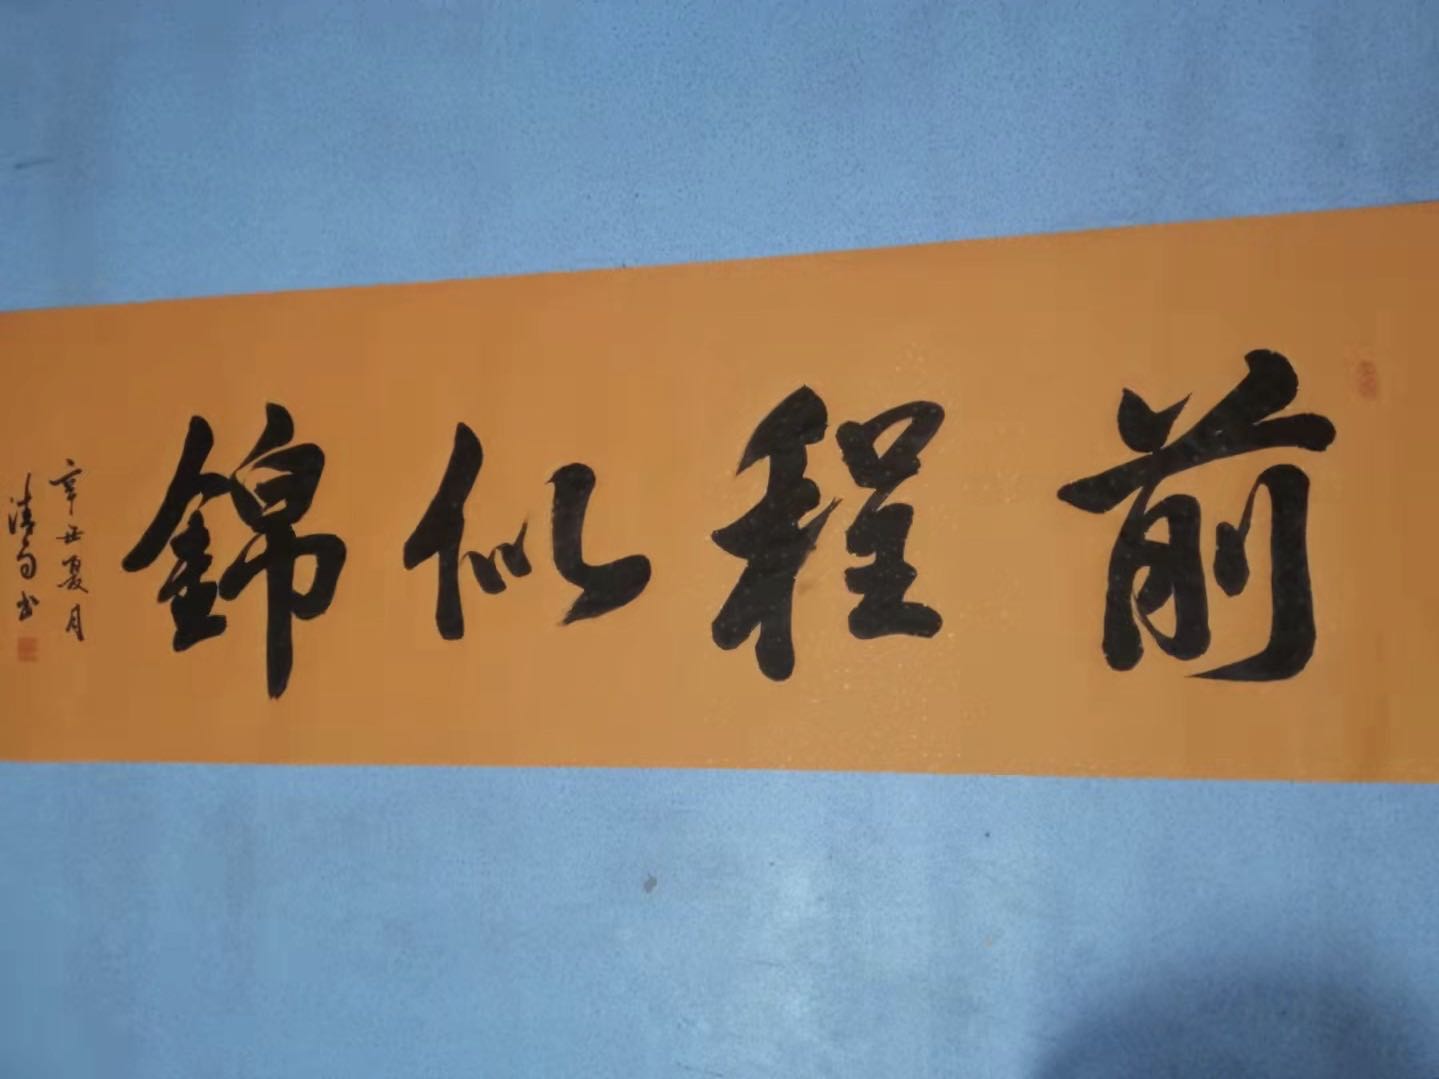 前程似錦
辛丑夏月